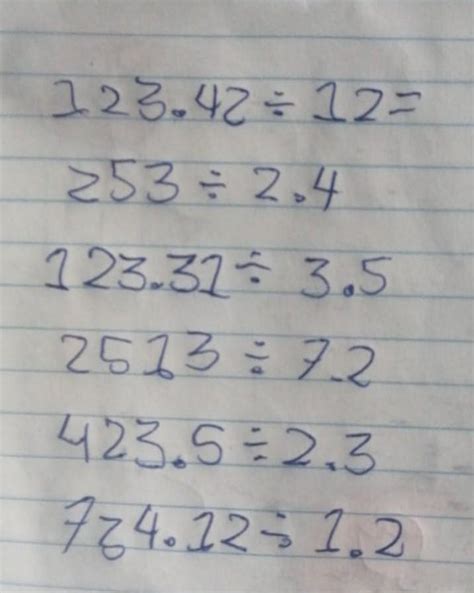 123.42 ÷ 12 =
253 ÷ 2.4
123.31 ÷ 3.5
2513 ÷ 7.2
423.5 ÷ 2.3
764.12 ÷ 1.2